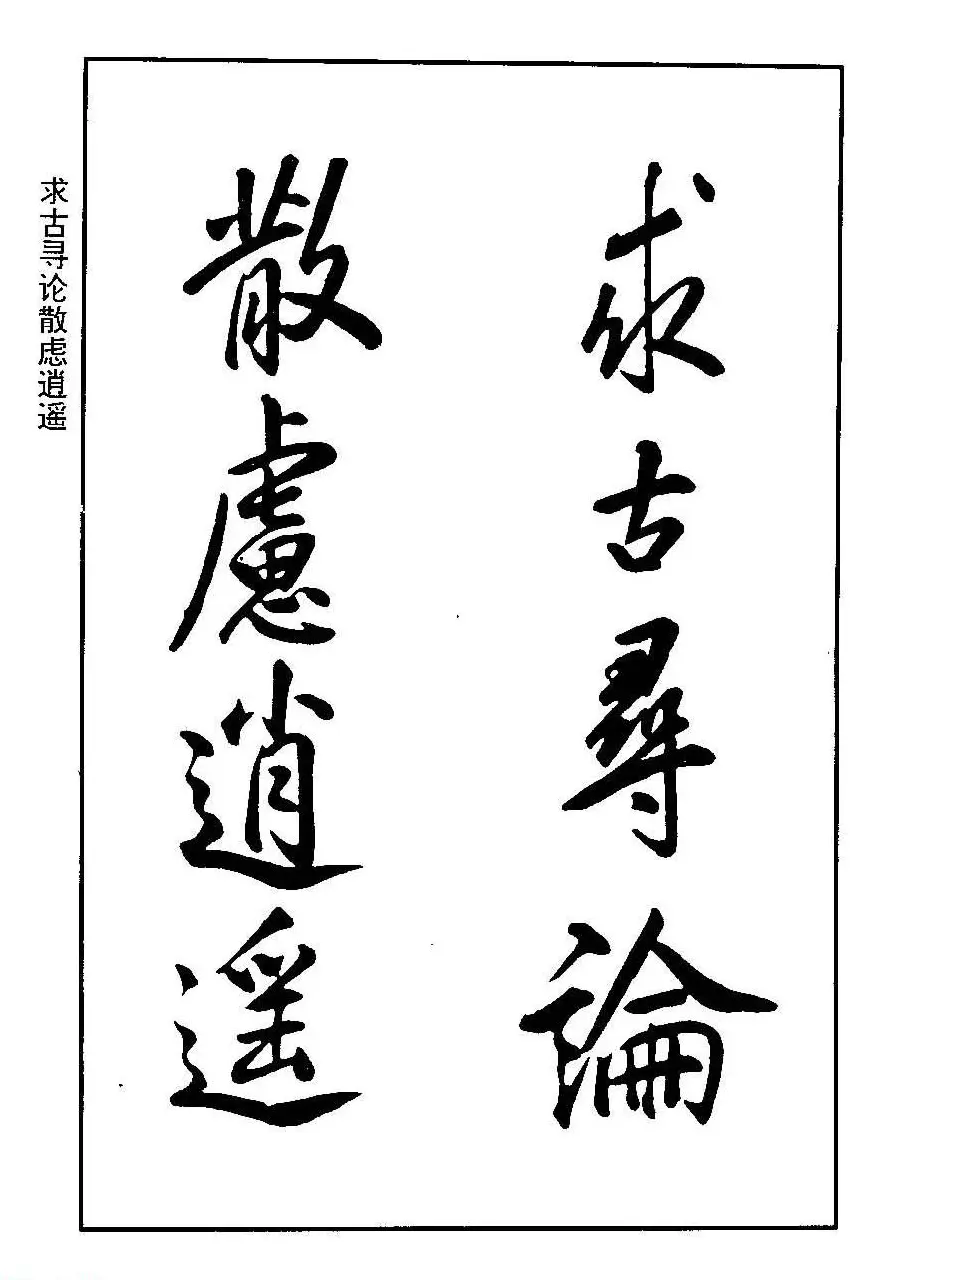 求古尋論
散慮逍遥
求古寻论散虑逍遥